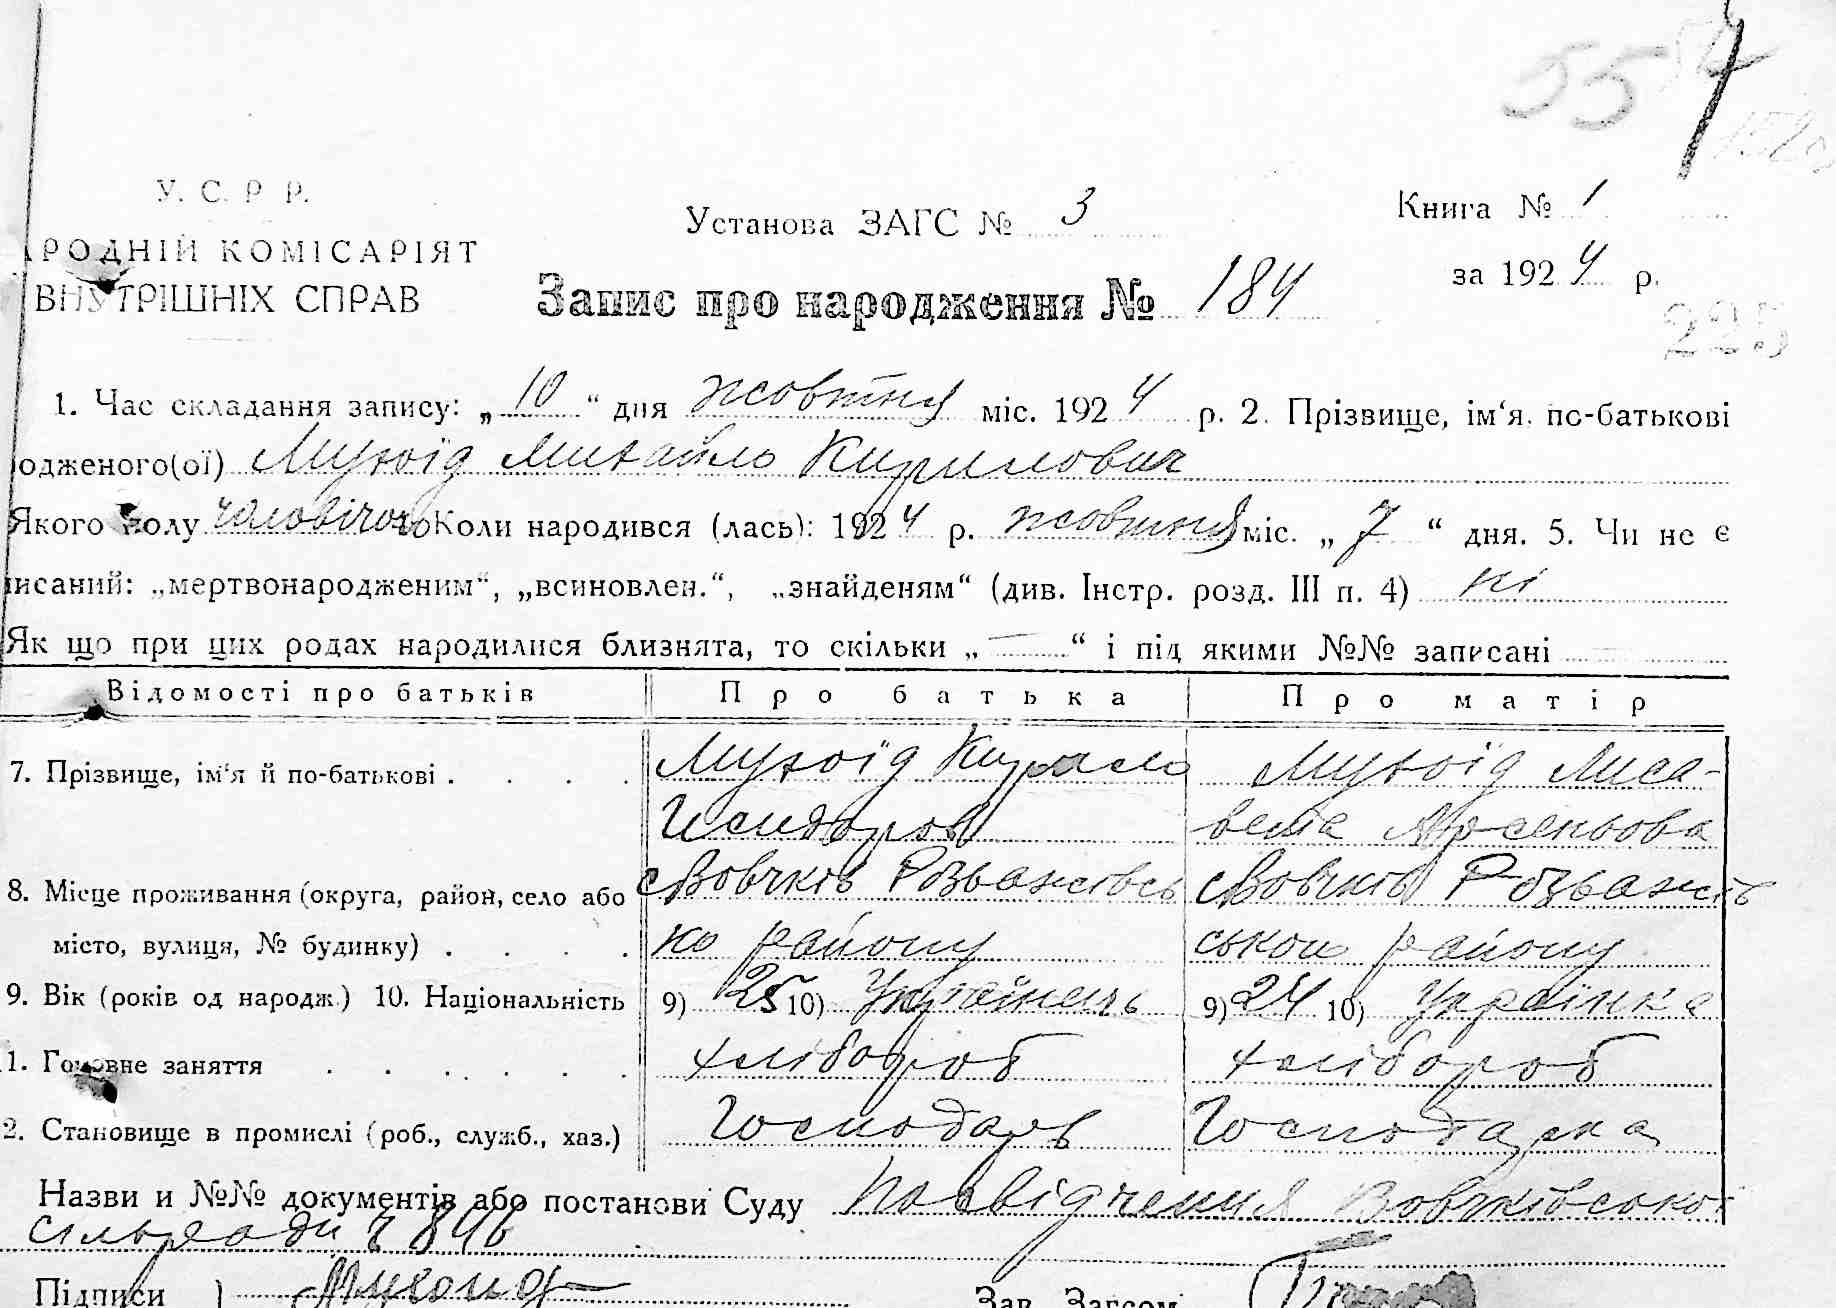 55
У. С. Р Р.
Установа ЗАГС № 3
Книга № 1
АРОДНІЙ КОМІСАРІЯТ
ВНУТРІШНІХ СПРАВ
Запис про народження № 184
за 1924 р.
225
1. Час складання запису: „ 10 “ дня жовтня міс. 1924 р. 2. Прізвище, ім‘я, по-батькові
одженого(ої) Мухоїд Михайло Кирилович
Якого полу чоловічого Коли народився (лась): 1924 р. жовтня міс. „ 7 “ дня. 5. Чи не є
писаний: „мертвонародженим“, „всиновлен.“, „знайденям“ (див. Інстр. розд. III п. 4) ні
Як що при цих родах народилися близнята, то скільки „ — “ і під якими №№ записані
Відомості про батьків Про батька Про матір
7. Прізвище, ім‘я й по-батькові . . . . Мухоїд Кирило Мухоїд Лиса-
Исидоров вета Арсеньова
8. Місце проживання (округа, район, село або с Вовчків Розважівсь с Вовчків Розважів
місто, вулиця, № будинку) . . . . ко району ськом району
9. Вік (років од народж.) 10. Національність 9) 25 10) Українець 9) 24 10) Українка
1. Головне заняття . . . . . . хлібороб хлібороб
2. Становище в промислі (роб., служб., хаз.) Господарь Господарка
Назви и №№ документів або постанови Суду Посвідчення Вовчківсько
сільради ч 846
Підписи } Мухоид Зав. Загсом